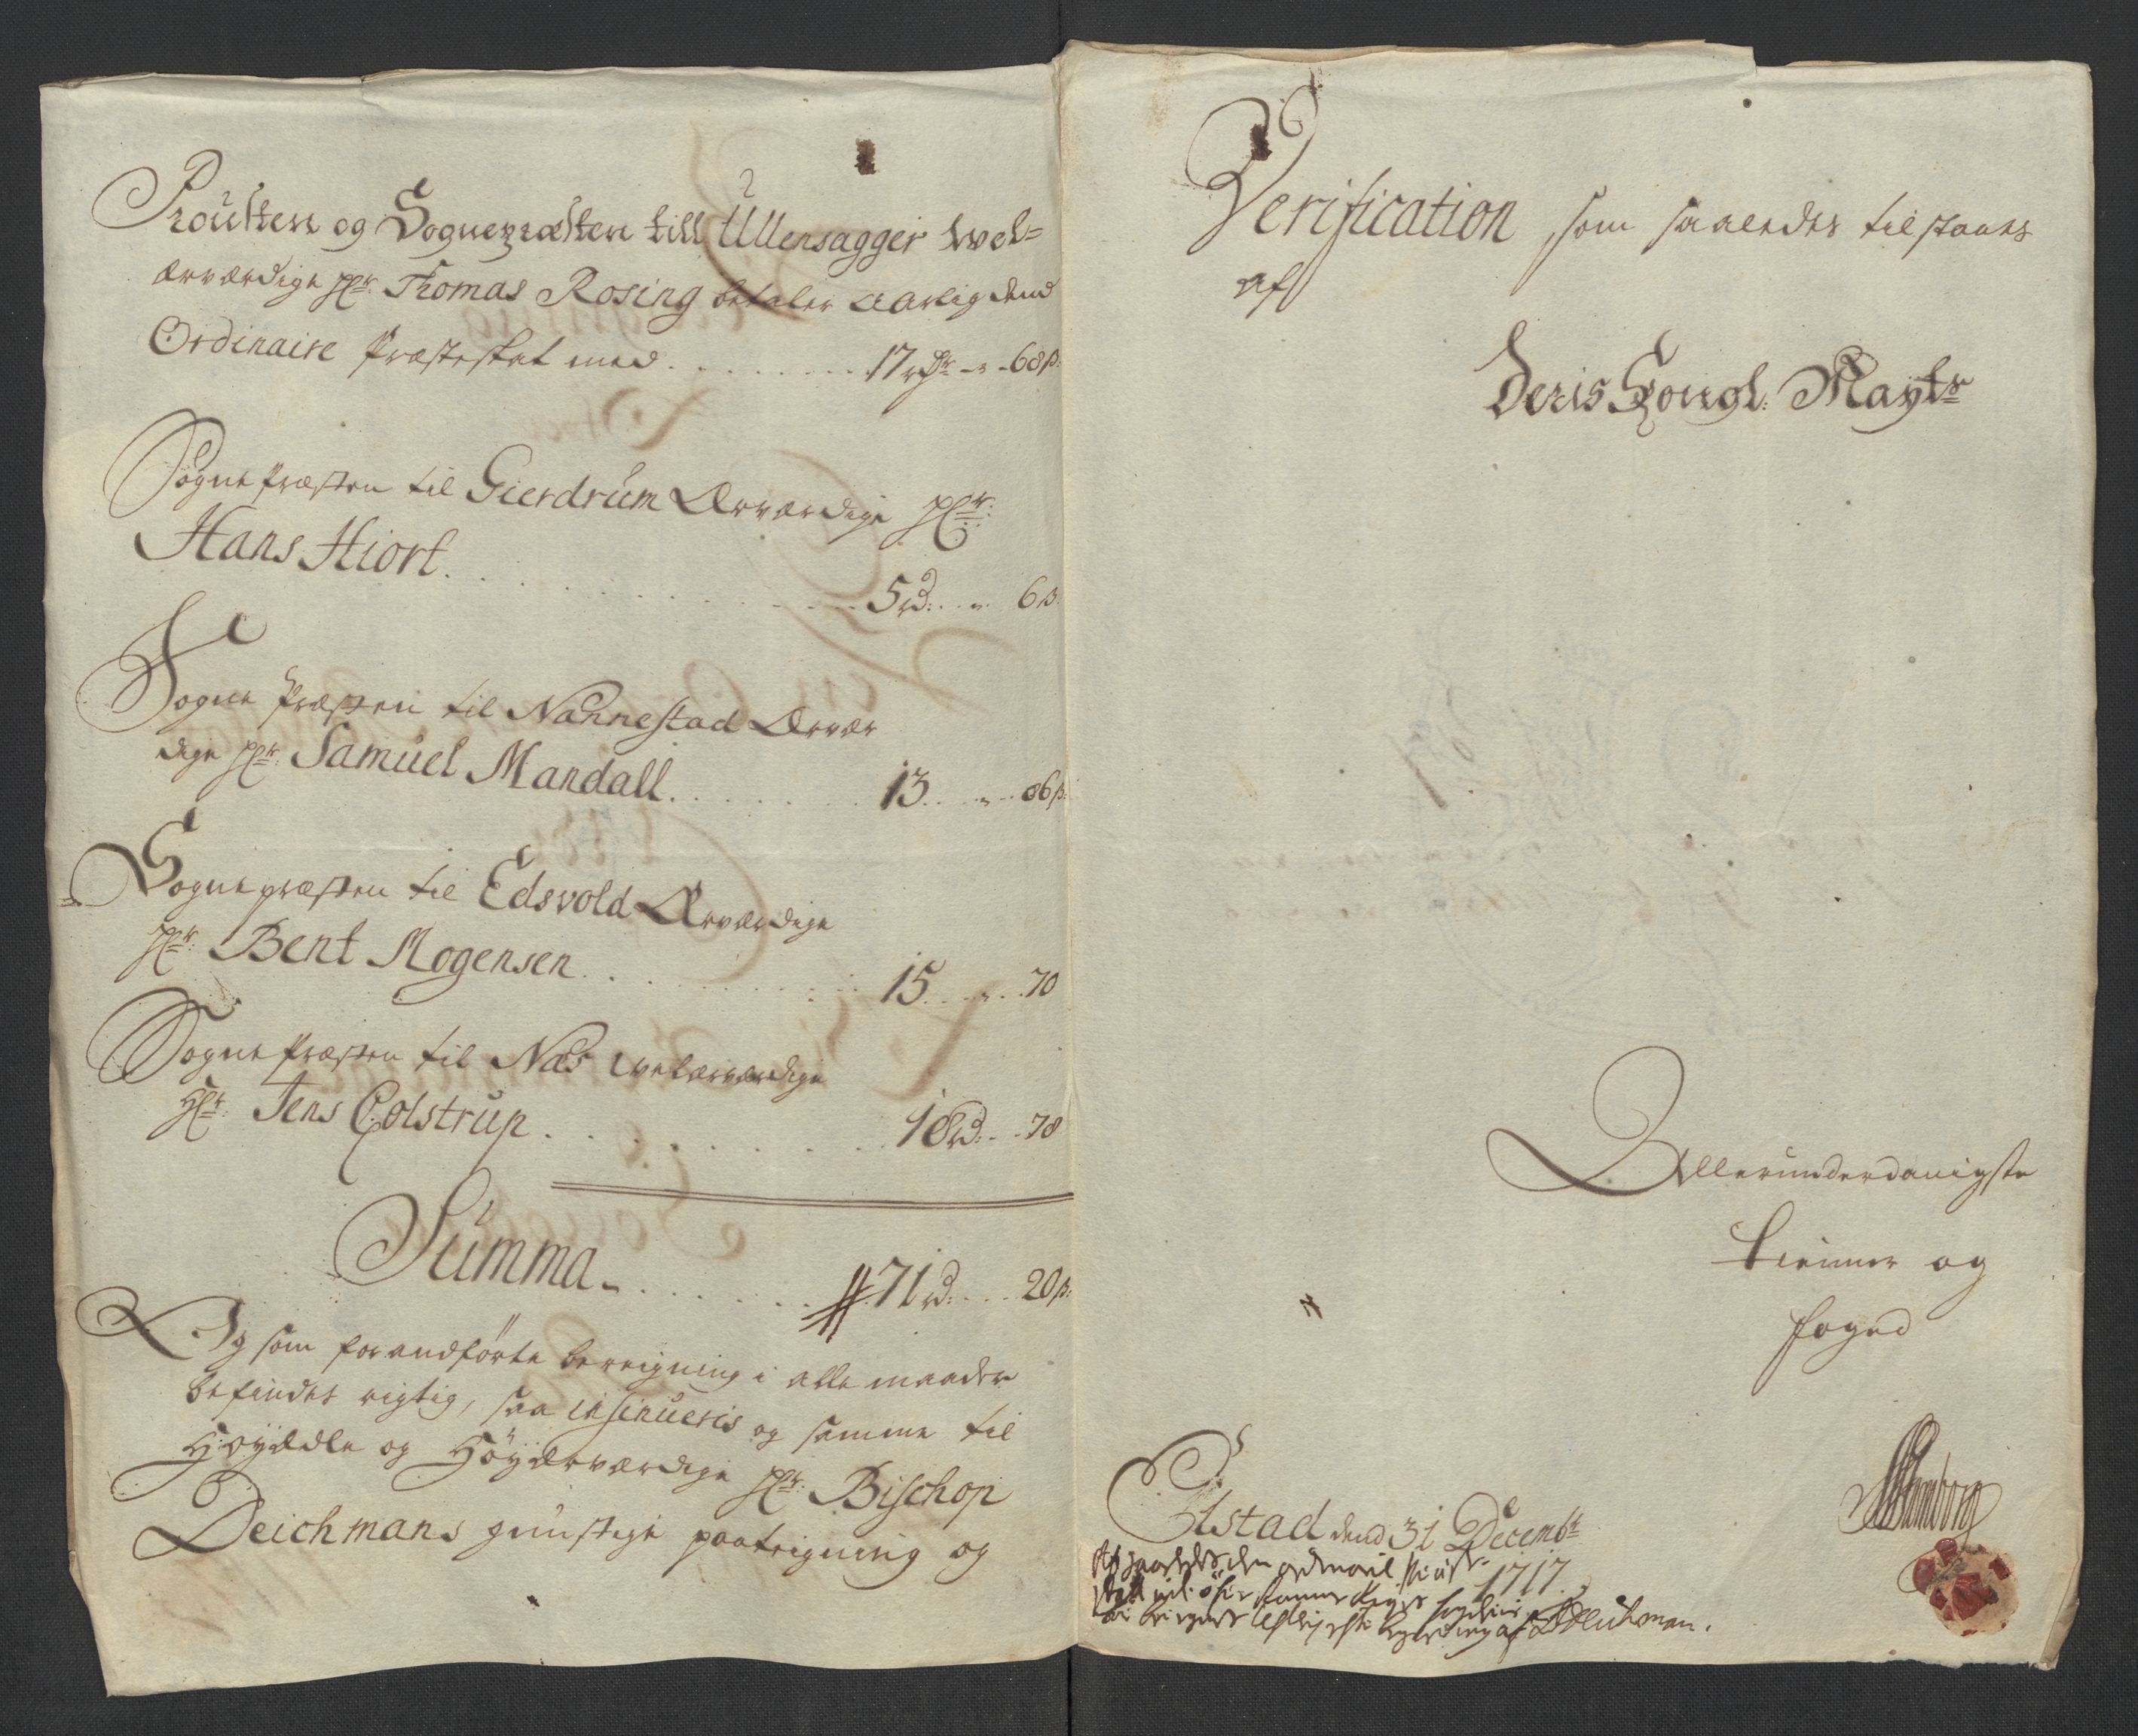 Prousten og Sognepræsten till Ullensagger Wel=
ærværdige Hr: Thomas Rosing betaler aarlig dend
Ordinaire Præsteskat med . . . . . . . . . 17 rdr - " - 68 ß:
Sogne Præsten til Gierdrum Ærværdige Hr:
Hans Hiort. . . . . . . . . . . 5 rd: . . " . 6 ß:
Sogne Præsten til Nannestad Ærvær
dige Hr: Samuel Mandall. . . . . . . . 13. . . " . . 86 ß:
Sognepræsten til Edsvold Ærværdige
Hr: Bent Mogensen. . . . . . . . . . 15. . . " . . 70
Sogne Præsten til Næs Welærværdige
Hr: Jens Colstrup . . . . . . . . . 18 rd: . . 78
Summa . . . . . . . 71 rd: . . . 20 ß:
Og som forandførte beregning i alle maader
befindes rigtig, saa insinueris og samme til
Høyædle og Høyærværdige Hr: Bischop
Deichmans gunstige paategning og
Verification, som saaledes tilstaaes
af
Deris Kongl: Mayts
Allerunderdanigste
tienner og
foged
Olstad dend 31 Decembr
1717.
af BDeichman.